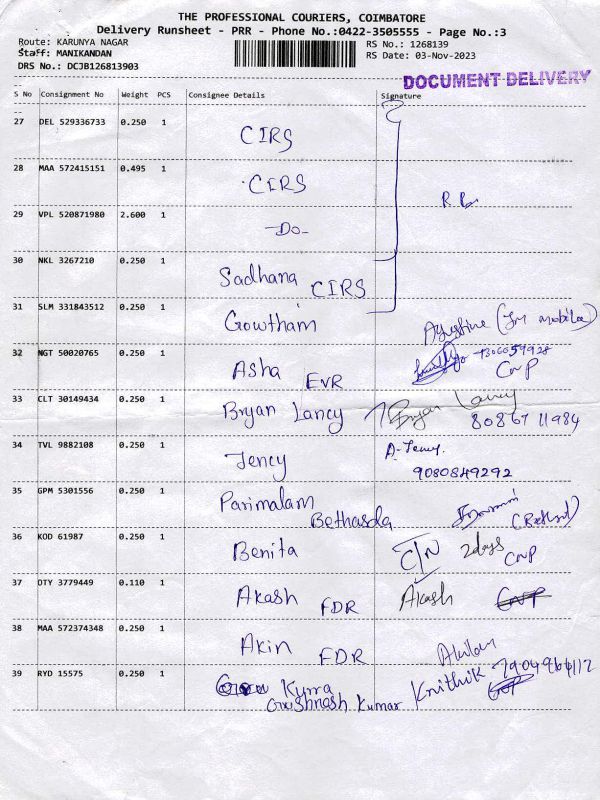 THE PROFESSIONAL COURIERS, COIMBATORE
Delivery Runsheet - PRR - Phone No.:0422-3505555 - Page No.:3
Route: KARUNYA NAGAR
Staff: MANIKANDAN
DRS No.: DCJB126813903
RS No.: 1268139
RS Date: 03-Nov-2023
DOCUMENT DELIVERY
S No Consignment No Weight PCS Consignee Details Signature
27 DEL 529336733 0.250 1 CIRS
28 MAA 572415151 0.495 1 CIRS
29 VPL 520871980 2.600 1 -Do-
30 NKL 3267210 0.250 1 Sadhana CIRS
31 SLM 331843512 0.250 1 Gowtham
32 NGT 50020765 0.250 1 Asha EVR CNP
33 CLT 30149434 0.250 1 Bryan Lancy Bryan Lancy
80867 11984
34 TVL 9882108 0.250 1 Jency A-Jency
9080849292
35 GPM 5301556 0.250 1 Parimalam
Bethasda
36 KOD 61987 0.250 1 Benita C/N 2days CNP
37 OTY 3779449 0.110 1 Akash FDR Akash
38 MAA 572374348 0.250 1 Akin FDR Akilan
39 RYD 15575 0.250 1 Kurra
Kumar